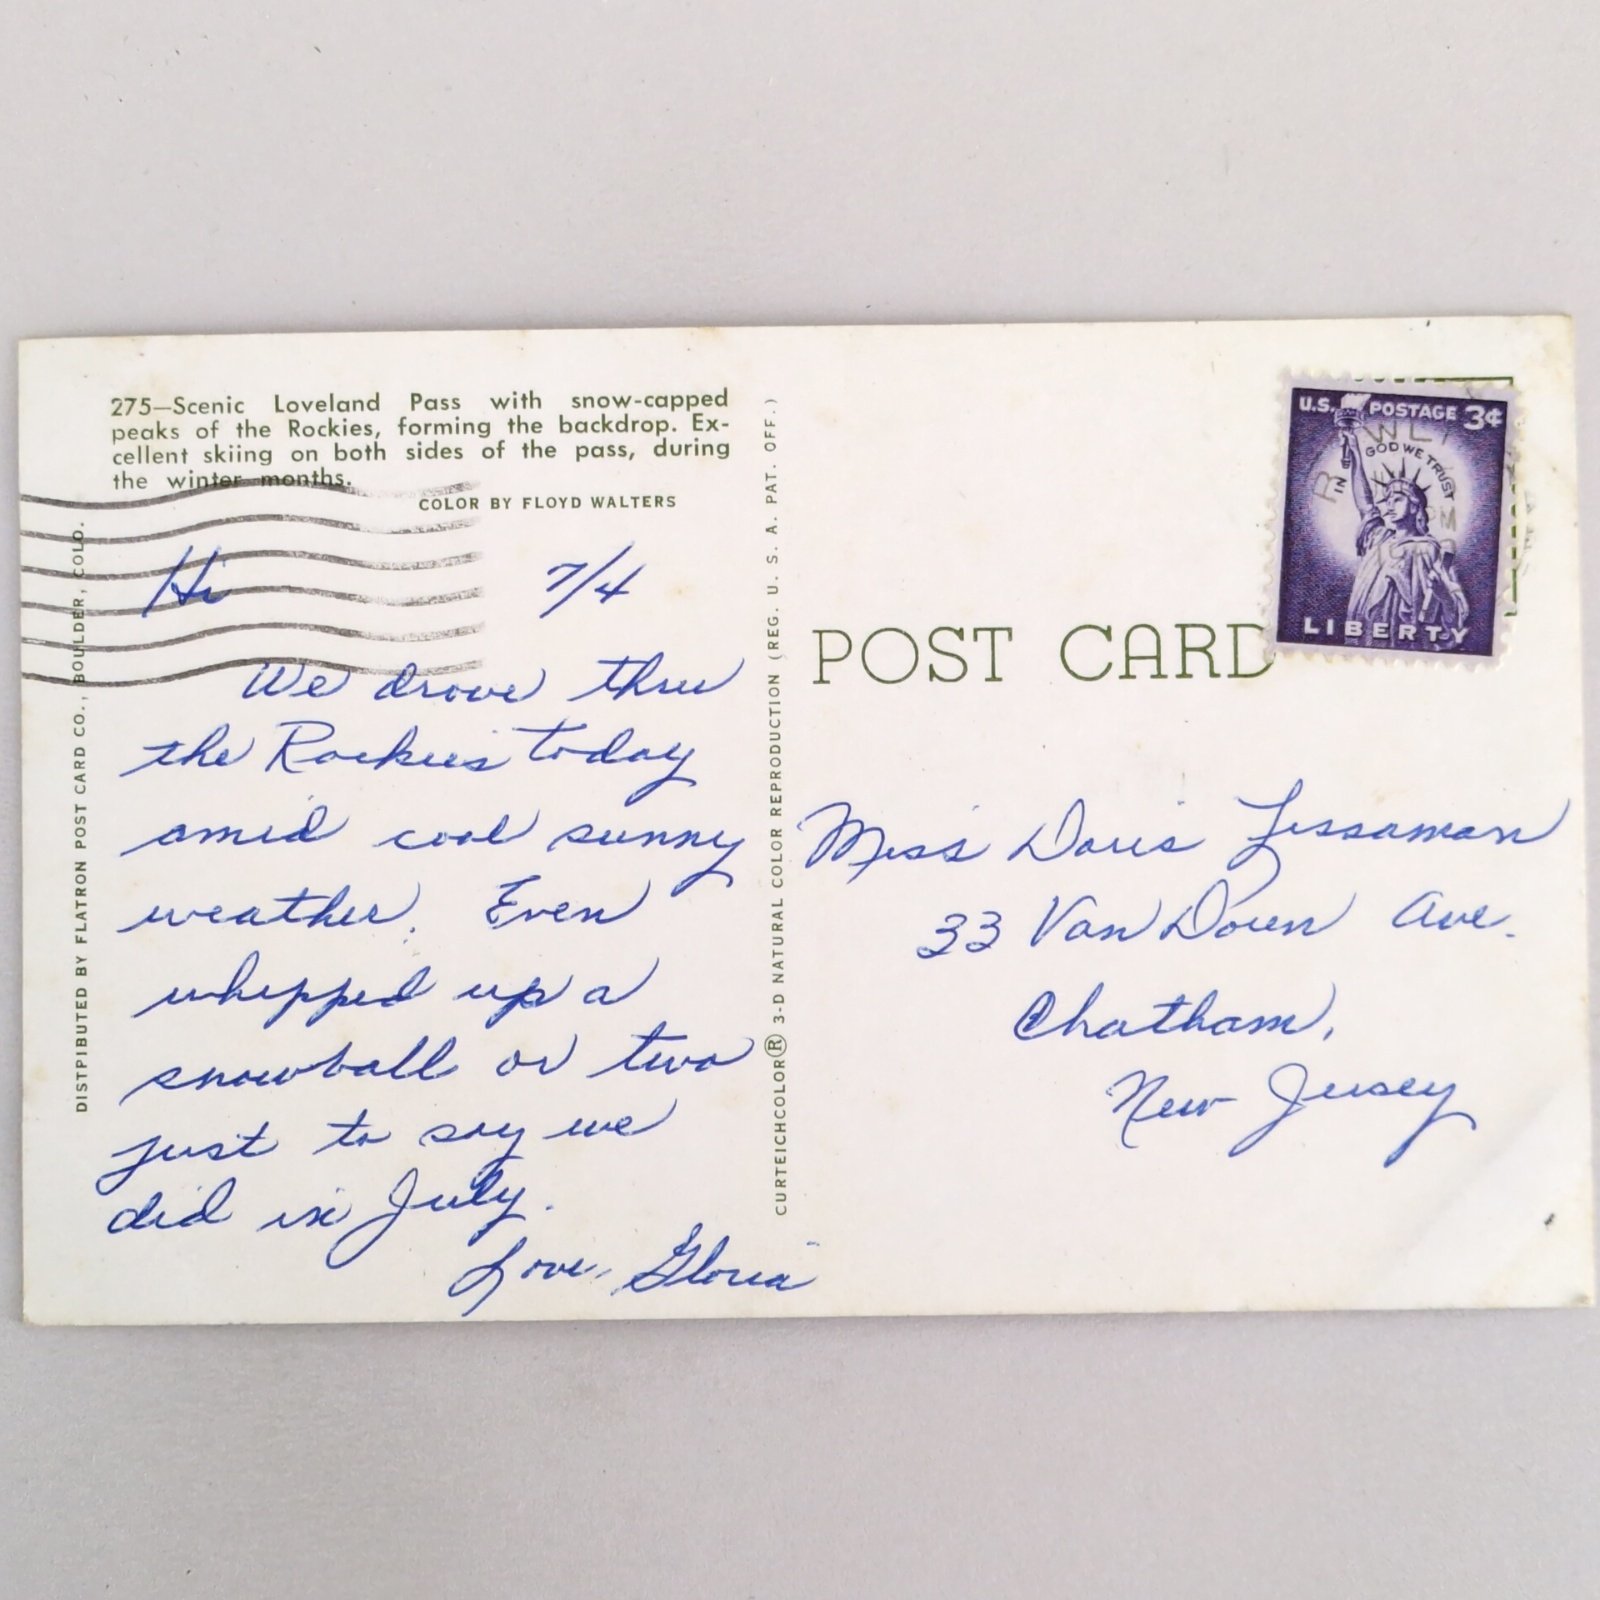 275—Scenic Loveland Pass with snow-capped
peaks of the Rockies, forming the backdrop. Ex-
cellent skiing on both sides of the pass, during
the winter months.
COLOR BY FLOYD WALTERS
DISTRIBUTED BY FLATRON POST CARD CO., BOULDER, COLO.
Hi 7/4
We drove thru
the Rockies today
amid cool sunny
weather. Even
whipped up a
snowball or two
just to say we
did in July.
Love, Gloria
CURTEICHCOLOR® 3-D NATURAL COLOR REPRODUCTION (REG. U. S. A. PAT. OFF.)
POST CARD
U.S. POSTAGE 3¢
IN GOD WE TRUST
LIBERTY
Miss Doris Lissaman
33 Van Doren Ave.
Chatham,
New Jersey